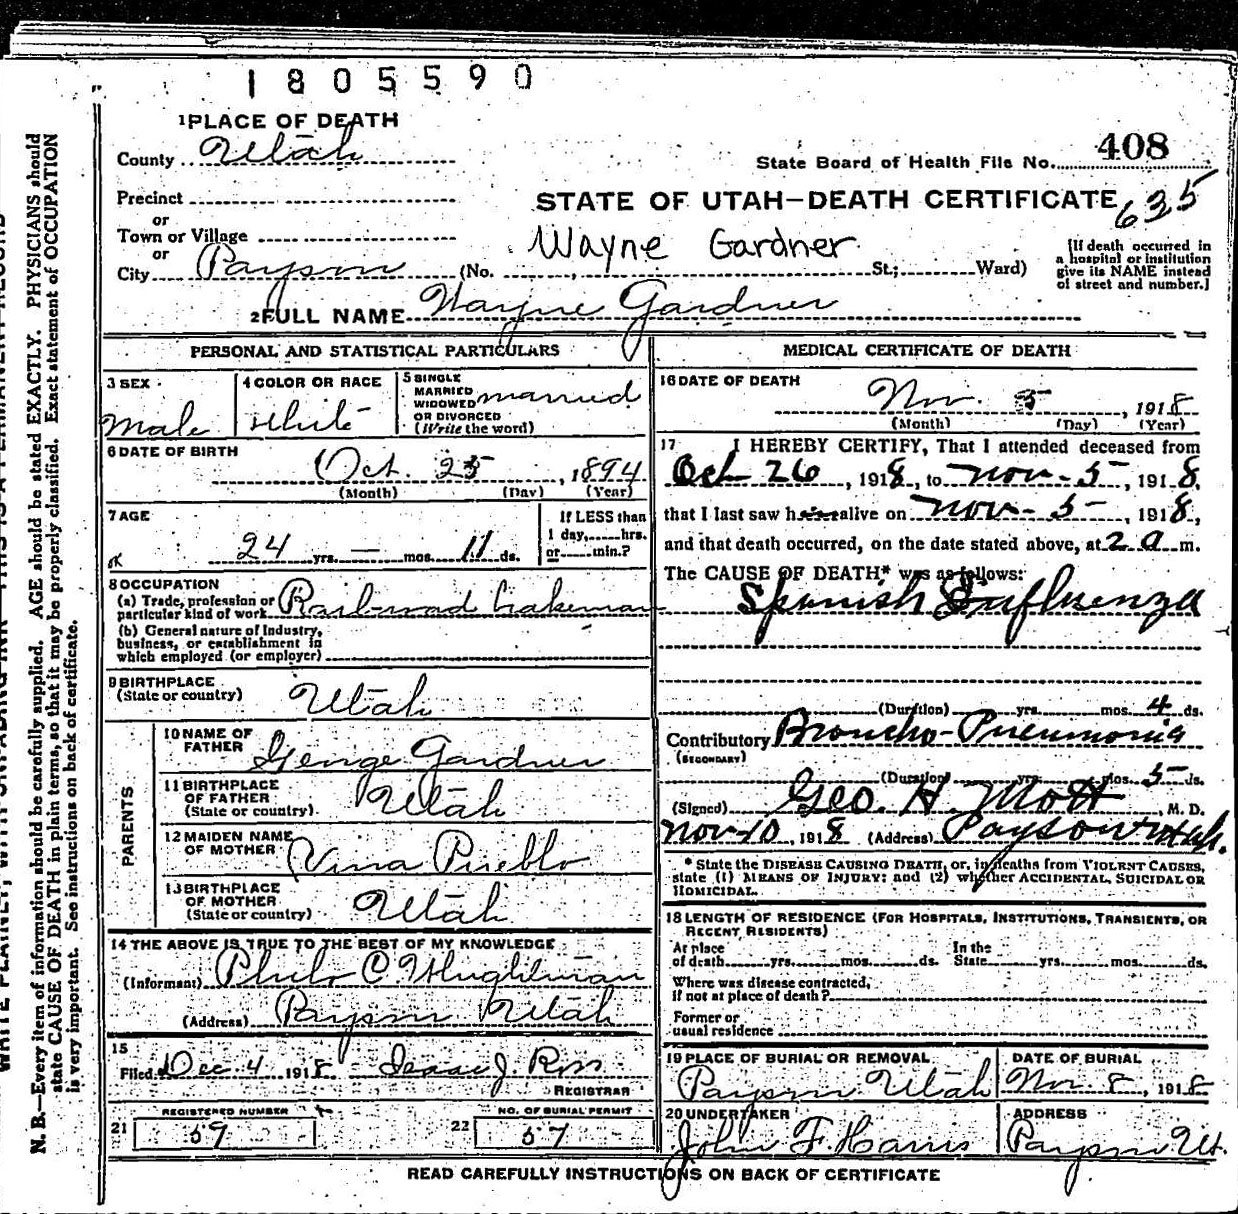 1805590
1 PLACE OF DEATH
County Utah
State Board of Health File No. 408
Precinct
or
STATE OF UTAH—DEATH CERTIFICATE 635
Town or Village
or
Wayne Gardner
City Payson (No. , St.; Ward)
[If death occurred in
a hospital or institution
give its NAME instead
of street and number.]
2 FULL NAME Wayne Gardner
PERSONAL AND STATISTICAL PARTICULARS
3 SEX
Male
4 COLOR OR RACE
White
5 SINGLE
MARRIED
WIDOWED
OR DIVORCED
(Write the word)
married
6 DATE OF BIRTH
Oct. 25, 1894
(Month) (Day) (Year)
7 AGE
24 yrs. — mos. 11 ds.
If LESS than
1 day, hrs.
or min.?
8 OCCUPATION
(a) Trade, profession or
particular kind of work Railroad brakeman
(b) General nature of Industry,
business, or establishment in
which employed (or employer)
9 BIRTHPLACE
(State or country) Utah
PARENTS
10 NAME OF
FATHER George Gardner
11 BIRTHPLACE
OF FATHER
(State or country) Utah
12 MAIDEN NAME
OF MOTHER Vina
13 BIRTHPLACE
OF MOTHER
(State or country) Utah
14 THE ABOVE IS TRUE TO THE BEST OF MY KNOWLEDGE
(Informant) Philo C.
(Address) Payson Utah
15
Filed Dec 4 1918 Isaac J. Ross
REGISTRAR
REGISTERED NUMBER
21 59
NO. OF BURIAL PERMIT
22 57
MEDICAL CERTIFICATE OF DEATH
16 DATE OF DEATH
Nov. 5, 1918
(Month) (Day) (Year)
17 I HEREBY CERTIFY, That I attended deceased from
Oct 26, 1918, to Nov. 5, 1918,
that I last saw h alive on Nov. 5, 1918,
and that death occurred, on the date stated above, at 2 a m.
The CAUSE OF DEATH* was as follows:
Spanish Influenza
(Duration) yrs. mos. 4 ds.
Contributory Broncho-Pneumonia
(SECONDARY)
(Duration) yrs. mos. 5 ds.
(Signed) Geo. H. Mott M. D.
Nov 10, 1918 (Address) Payson Utah.
* State the DISEASE CAUSING DEATH, or, in deaths from VIOLENT CAUSES,
state (1) MEANS OF INJURY; and (2) whether ACCIDENTAL, SUICIDAL OR
HOMICIDAL.
18 LENGTH OF RESIDENCE (FOR HOSPITALS, INSTITUTIONS, TRANSIENTS, OR
RECENT RESIDENTS)
At place In the
of death yrs. mos. ds. State yrs. mos. ds.
Where was disease contracted,
if not at place of death?
Former or
usual residence
19 PLACE OF BURIAL OR REMOVAL
Payson Utah
DATE OF BURIAL
Nov. 8, 1918
20 UNDERTAKER
John F. Harris
ADDRESS
Payson Ut.
READ CAREFULLY INSTRUCTIONS ON BACK OF CERTIFICATE
N. B.—Every item of information should be carefully supplied. AGE should be stated EXACTLY. PHYSICIANS should
state CAUSE OF DEATH in plain terms, so that it may be properly classified. Exact statement of OCCUPATION
is very important. See instructions on back of certificate.